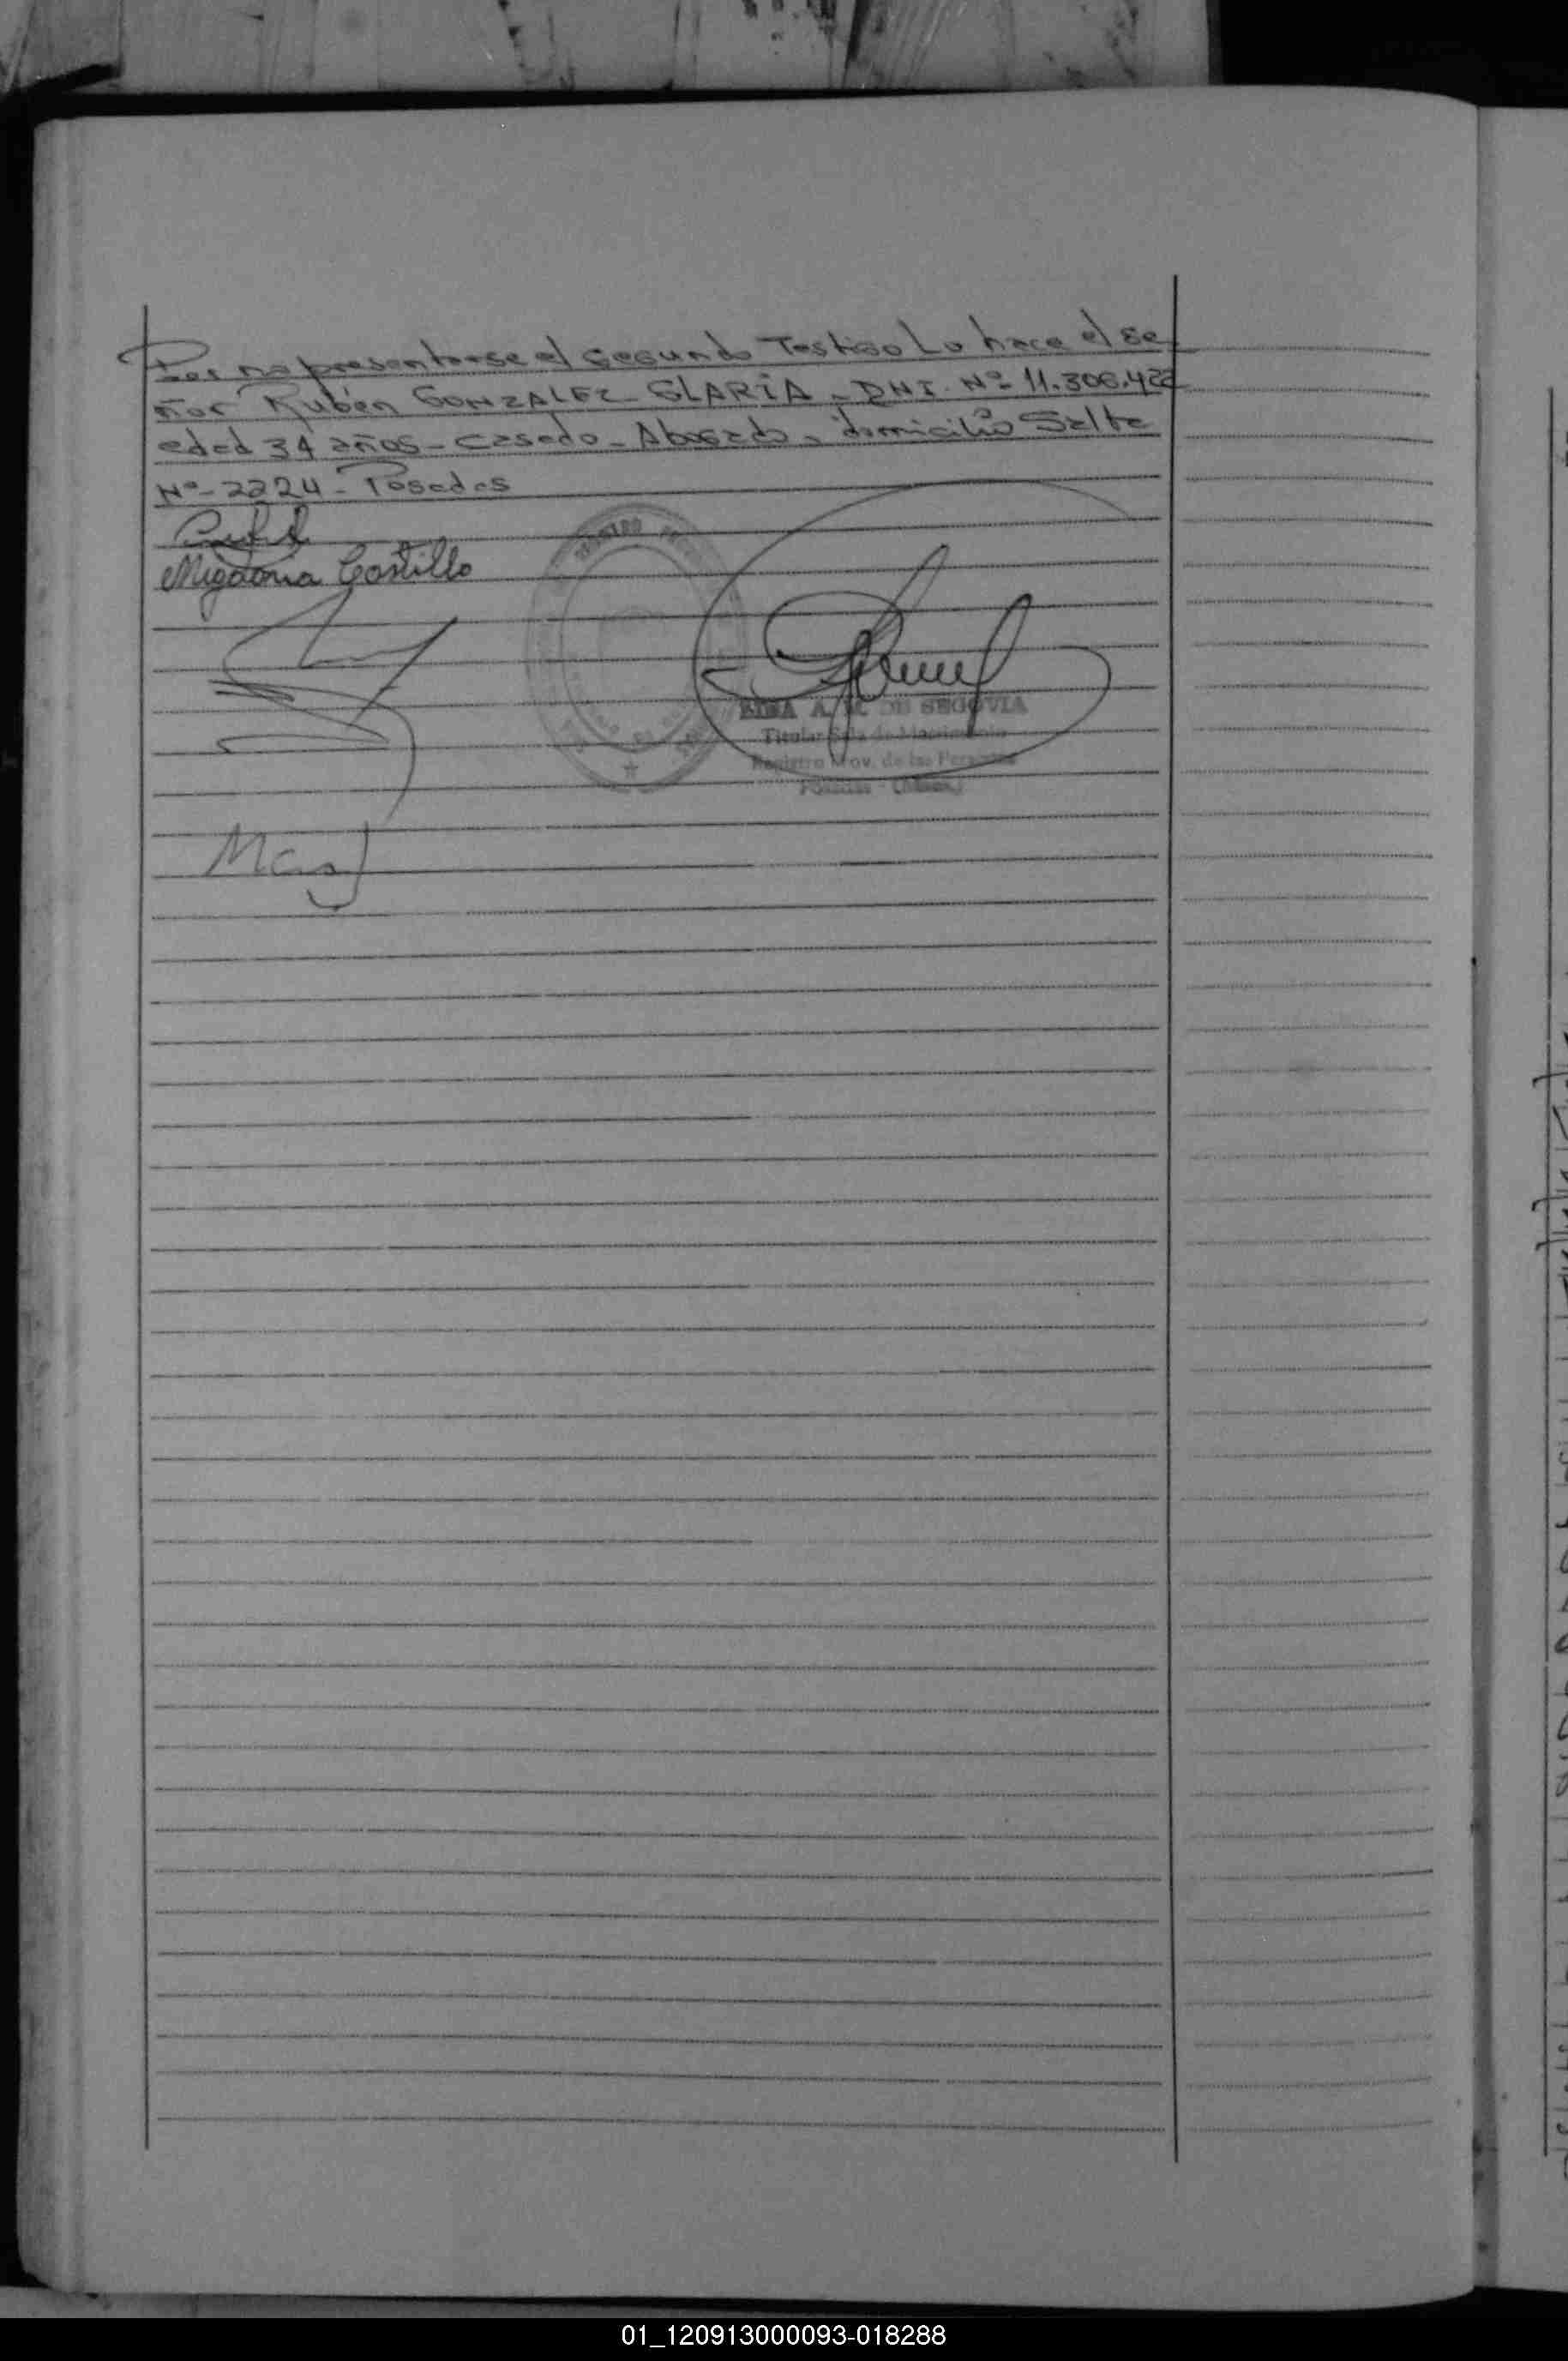 Por no presentarse el segundo Testigo Lo hace el Se
ñor Rubén GONZALEZ GLARIA - DNI. Nº 11.306.422
edad 34 años - casado - Abogado - domicilio Salta
Nº - 2224 - Posadas
Migdonia Castillo
REGISTRO
A. M. DE SEGOVIA
Titular Sala de Matrimonio
Registro Prov. de las Personas
Posadas - (Mnes.)
01_120913000093-018288